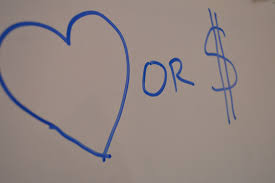 OR $